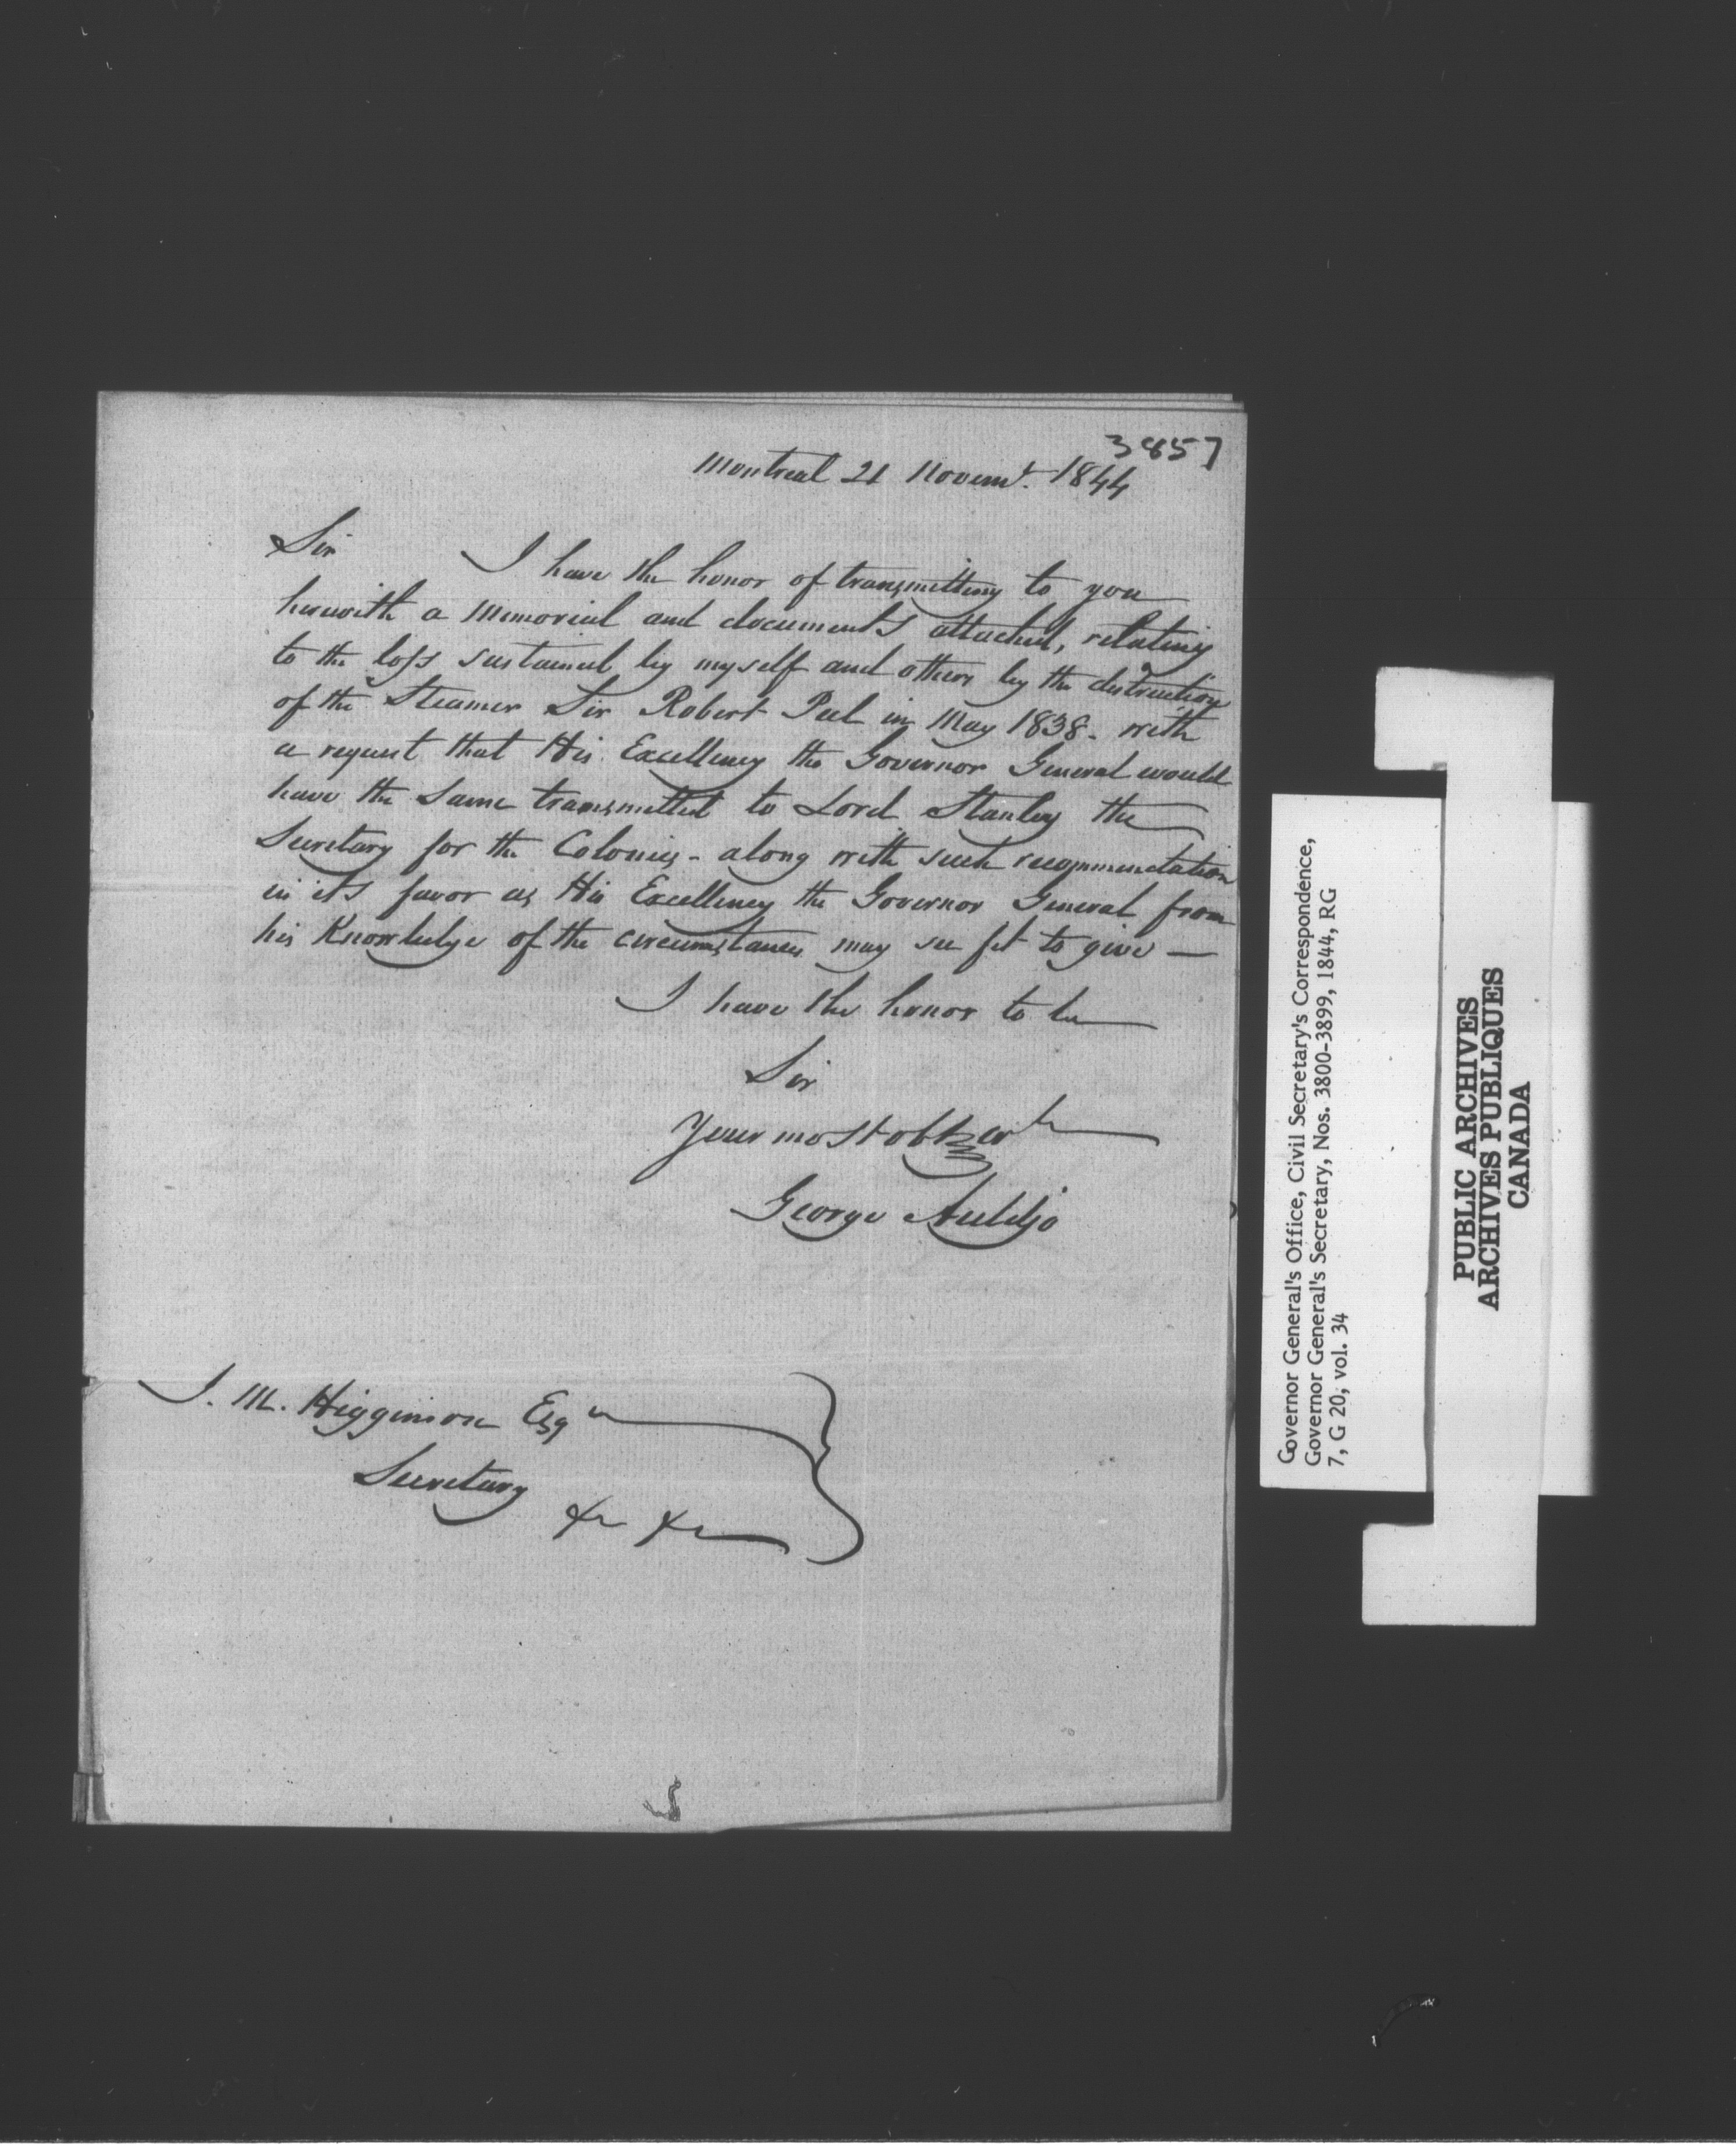 3857
Montreal 21 Novemr. 1844
Sir
I have the honor of transmitting to you
herewith a Memorial and documents attached, relating
to the loss sustained by myself and others by the destruction
of the Steamer Sir Robert Peel in May 1838 - with
a request that His Excellency the Governor General would
have the same transmitted to Lord Stanley the
Secretary for the Colonies - along with such recommendation
in its favor as His Excellency the Governor General from
his Knowledge of the circumstances may see fit to give —
I have the honor to be
Sir
Your most obt Servt
George Auldjo
J. M. Higginson Esqr
Secretary
&c &c
Governor General's Office, Civil Secretary's Correspondence,
Governor General's Secretary, Nos. 3800-3899, 1844, RG
7, G 20, vol. 34
PUBLIC ARCHIVES
ARCHIVES PUBLIQUES
CANADA